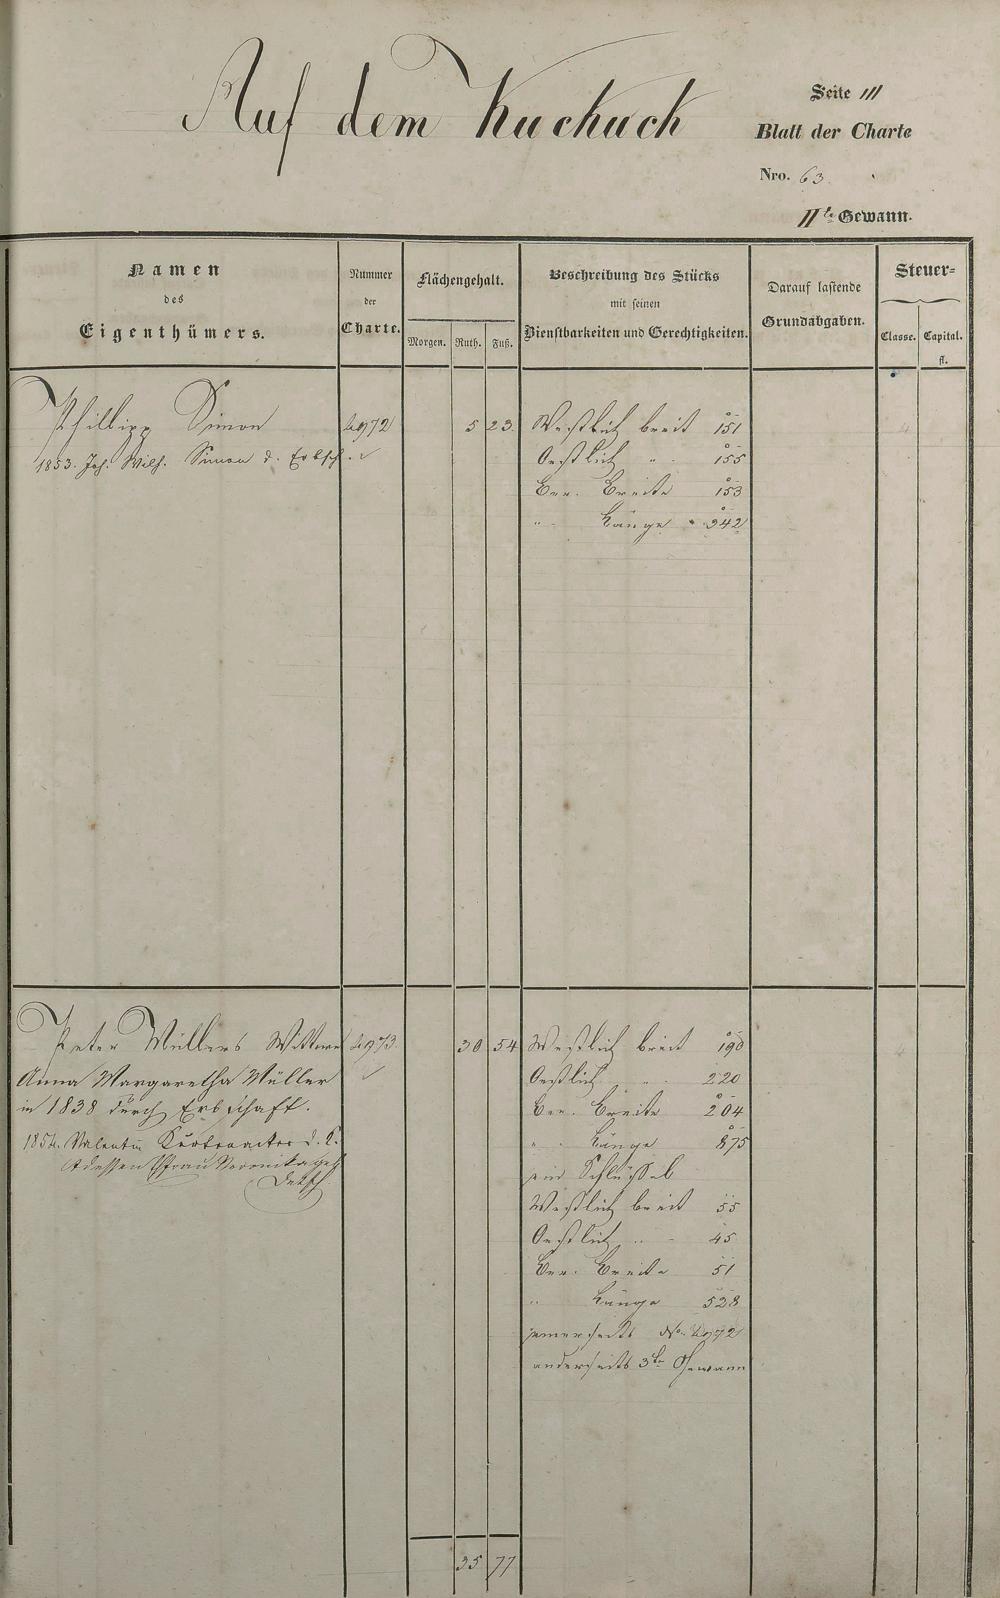 Auf dem Kuckuck
Seite III
Blatt der Charte
Nro. 63
IIte Gewann.
Namen
des
Eigenthümers.
Nummer
der
Charte.
Flächengehalt.
Morgen. Ruth. Fuß.
Beschreibung des Stücks
mit seinen
Dienstbarkeiten und Gerechtigkeiten.
Darauf lastende
Grundabgaben.
Steuer-
Classe. Capital.
fl.
Phillipp Simon 5 23 Westlich breit 151
1853. Joh. Wilh. Simon d. Erbsch. Oestlich " 155
Ber. Breite 153
" Länge 342
Peter Müllers Wittwe 30 54 Westlich breit 190
Anna Margaretha Müller Oestlich " 220
in 1838 durch Erbschaft. Ber. Breite 204
1854. Valentin d. K. " Länge 875
dessen Efrau Veronika geb ein Schlüssel
Detsch Westlich breit 55
Oestlich " 45
Ber. Breite 51
" Länge 528
jenerseits No.
anderseits 3te Gewann
35 77